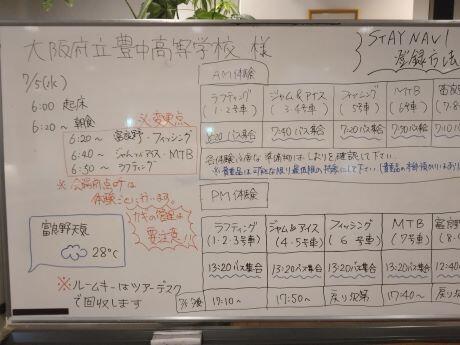 大阪府立豊中高等学校 様
STAY NAVI
登録方法
7/5(火)
6:00 起床
6:20~ 朝食
※変更点
6:20~ 富良野・フィッシング
6:40~ ジャム&アイス・MTB
6:50~ ラフティング
※公衆前点呼は
体験ごと行います。
カギの管理は
要注意!!
富良野天気
28℃
※ルームキーはツアーデスク
で回収します
AM体験
ラフティング ジャム&アイス フィッシング MTB 富良野
(1・2号車) (3・4号車) (5号車) (6号車)
6:20 バス集合 7:40 バス集合 7:20 バス集合 7:50 バス集合 7:10 バス
各体験必要な準備物はしおりを確認して下さい
※貴重品は可能な限り最低限の持参にして下さい
PM体験
ラフティング ジャム&アイス フィッシング MTB 富良野
(1・2・3号車) (4・5号車) (6号車) (7号車)
13:20 バス集合 13:20 バス集合 13:20 バス集合 13:20 バス集合 12:40
17:10~ 17:50~ 戻り次第 17:40~ 戻り次